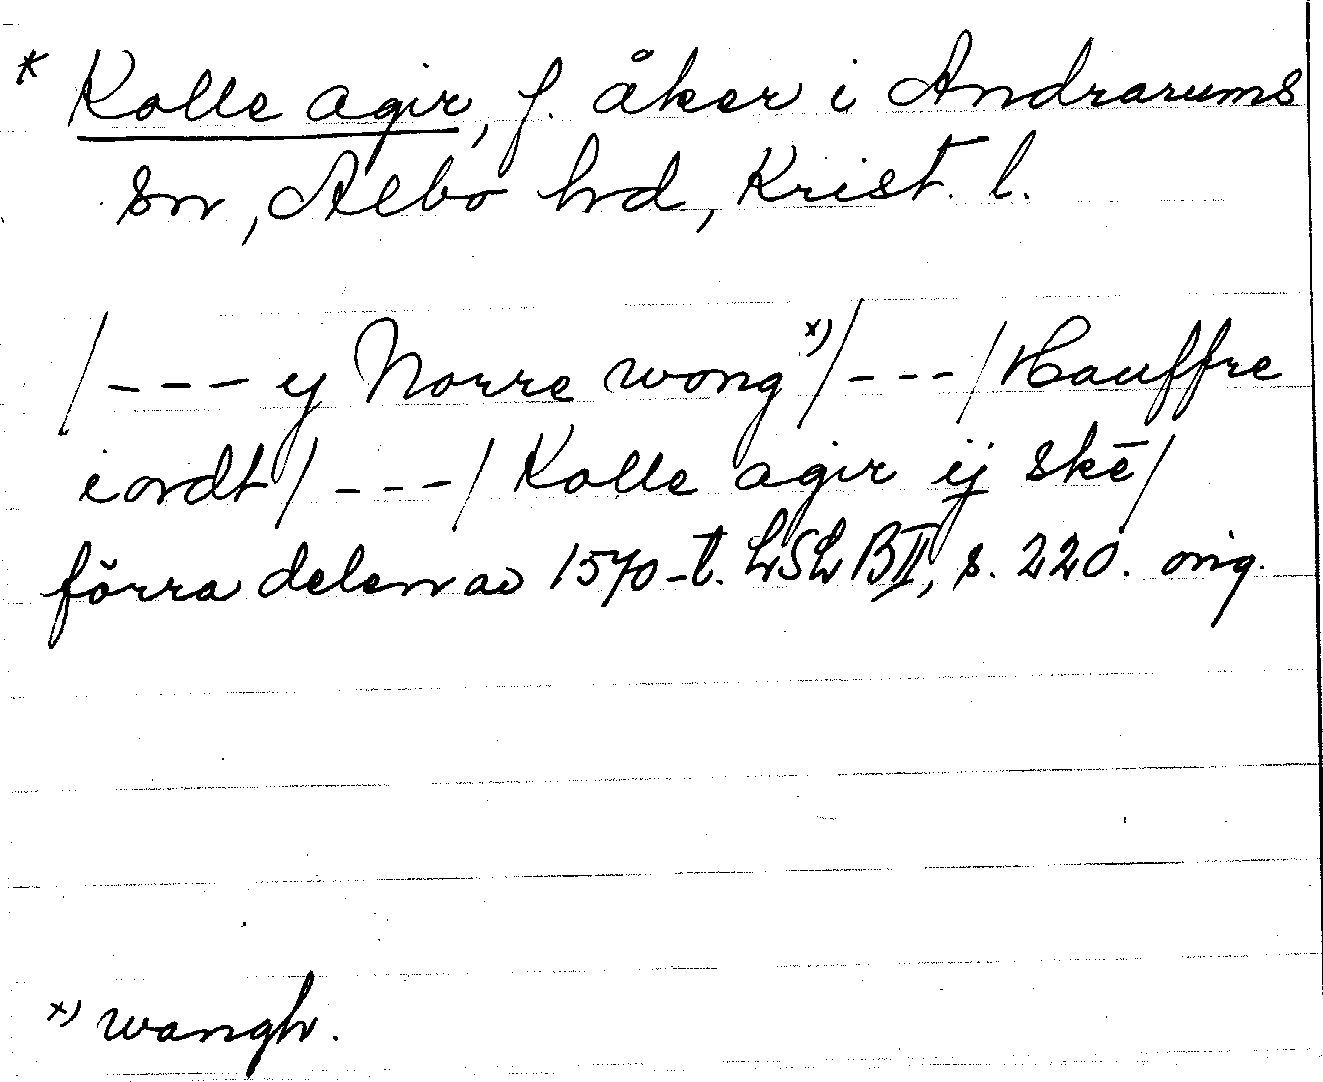 * Kolle agir, f. åker i Andrarums
sn, Albo hd, Krist. l.
/--- ij Norre wong x)/---/Hauffre
iordt/---/Kolle agir ij skē/
förra delen av 1570-t. LSLBII, s. 220. orig.
x) wangh.